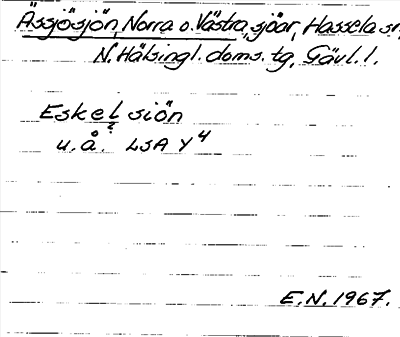 Ässjösjön, Norra o. Västra, sjöar, Hassela sn,
N. Hälsingl. doms. tg, Gävl. l.
Eskel siön
?
u.å. LSA Y4
E.N. 1967.